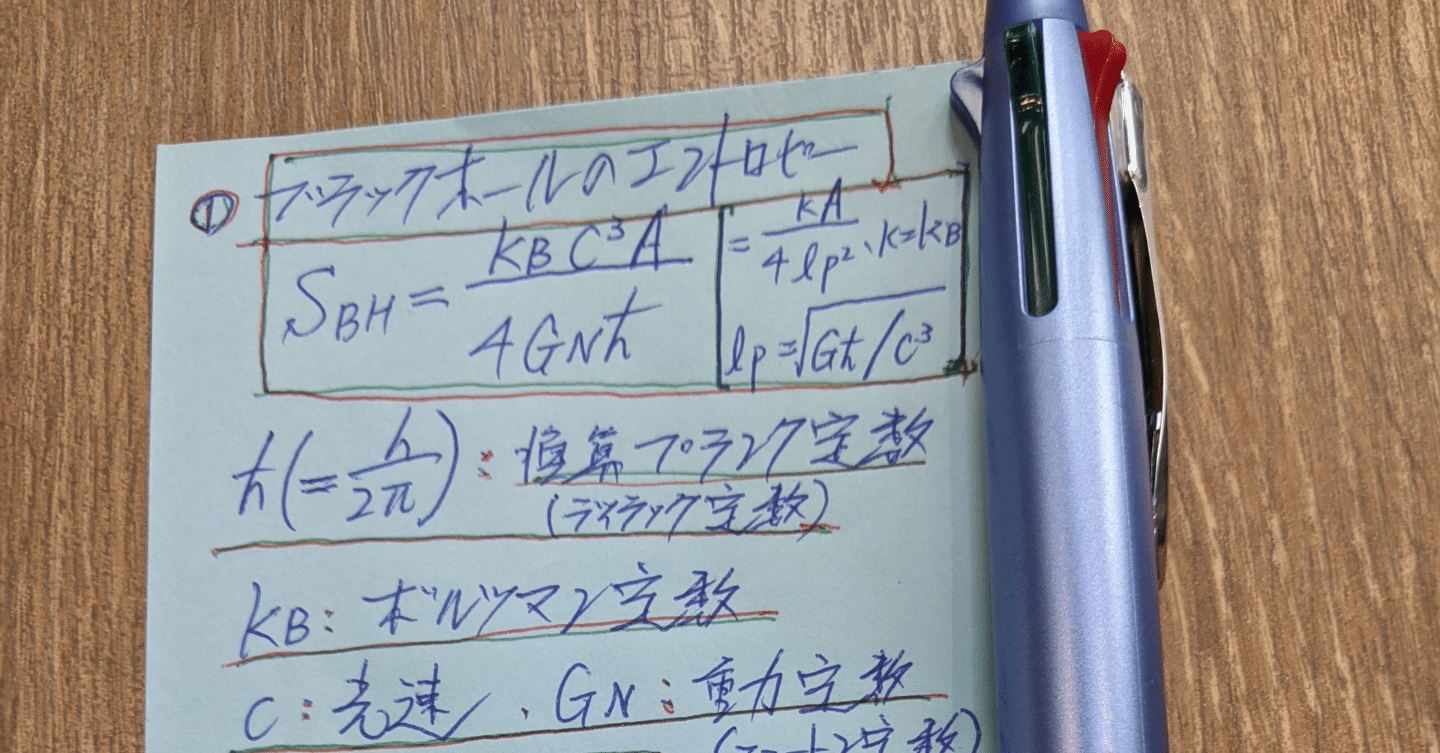 ① ブラックホールのエントロピー
S_BH = k_B C³ A / 4 G_N ħ
= kA / 4 l_p²、k = k_B
l_p = √Għ/C³
ħ (= h / 2π) : 換算プランク定数
(ディラック定数)
k_B : ボルツマン定数
C : 光速、G_N : 重力定数
(ニュートン定数)